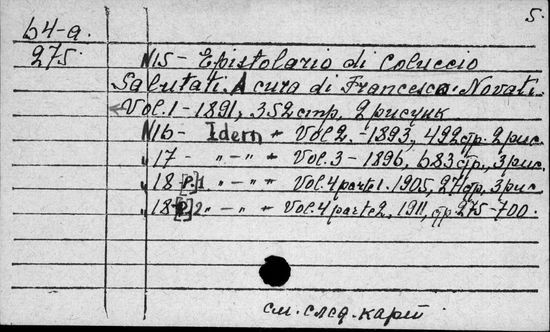 5.
64-a.
275
N15 - Epistolario di Coluccio
Salutati. A cura di Francesco Novati.
Vol.1 - 1891, 352 стр, 2 рисунк
N16 - Idem + Vol 2. - 1893, 492 стр. 2 рис.
" 17 - " - " + Vol.3 - 1896, 683 стр., 3 рис.
" 18 [P.] 1 " - " + Vol.4 parte 1. 1905, 27 стр, 3 рис.
" 18 [P.] 2 " - " + Vol.4 parte 2, 1911, стр 275-700.
см. след. карт